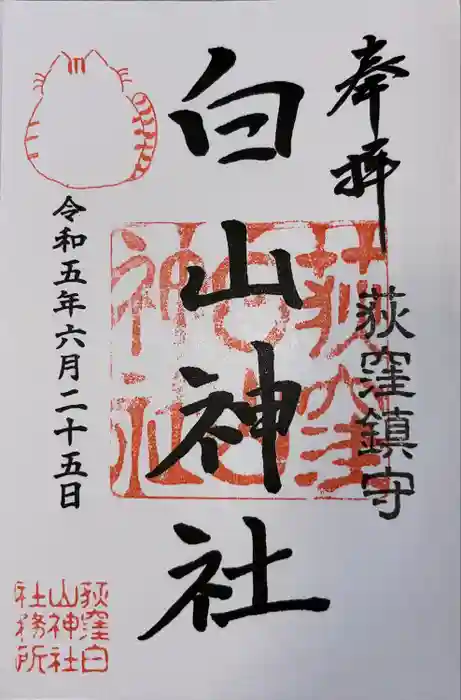 奉拝
荻窪鎮守
白山神社
荻窪
白山
神社
令和五年六月二十五日
荻窪白
山神社
社務所